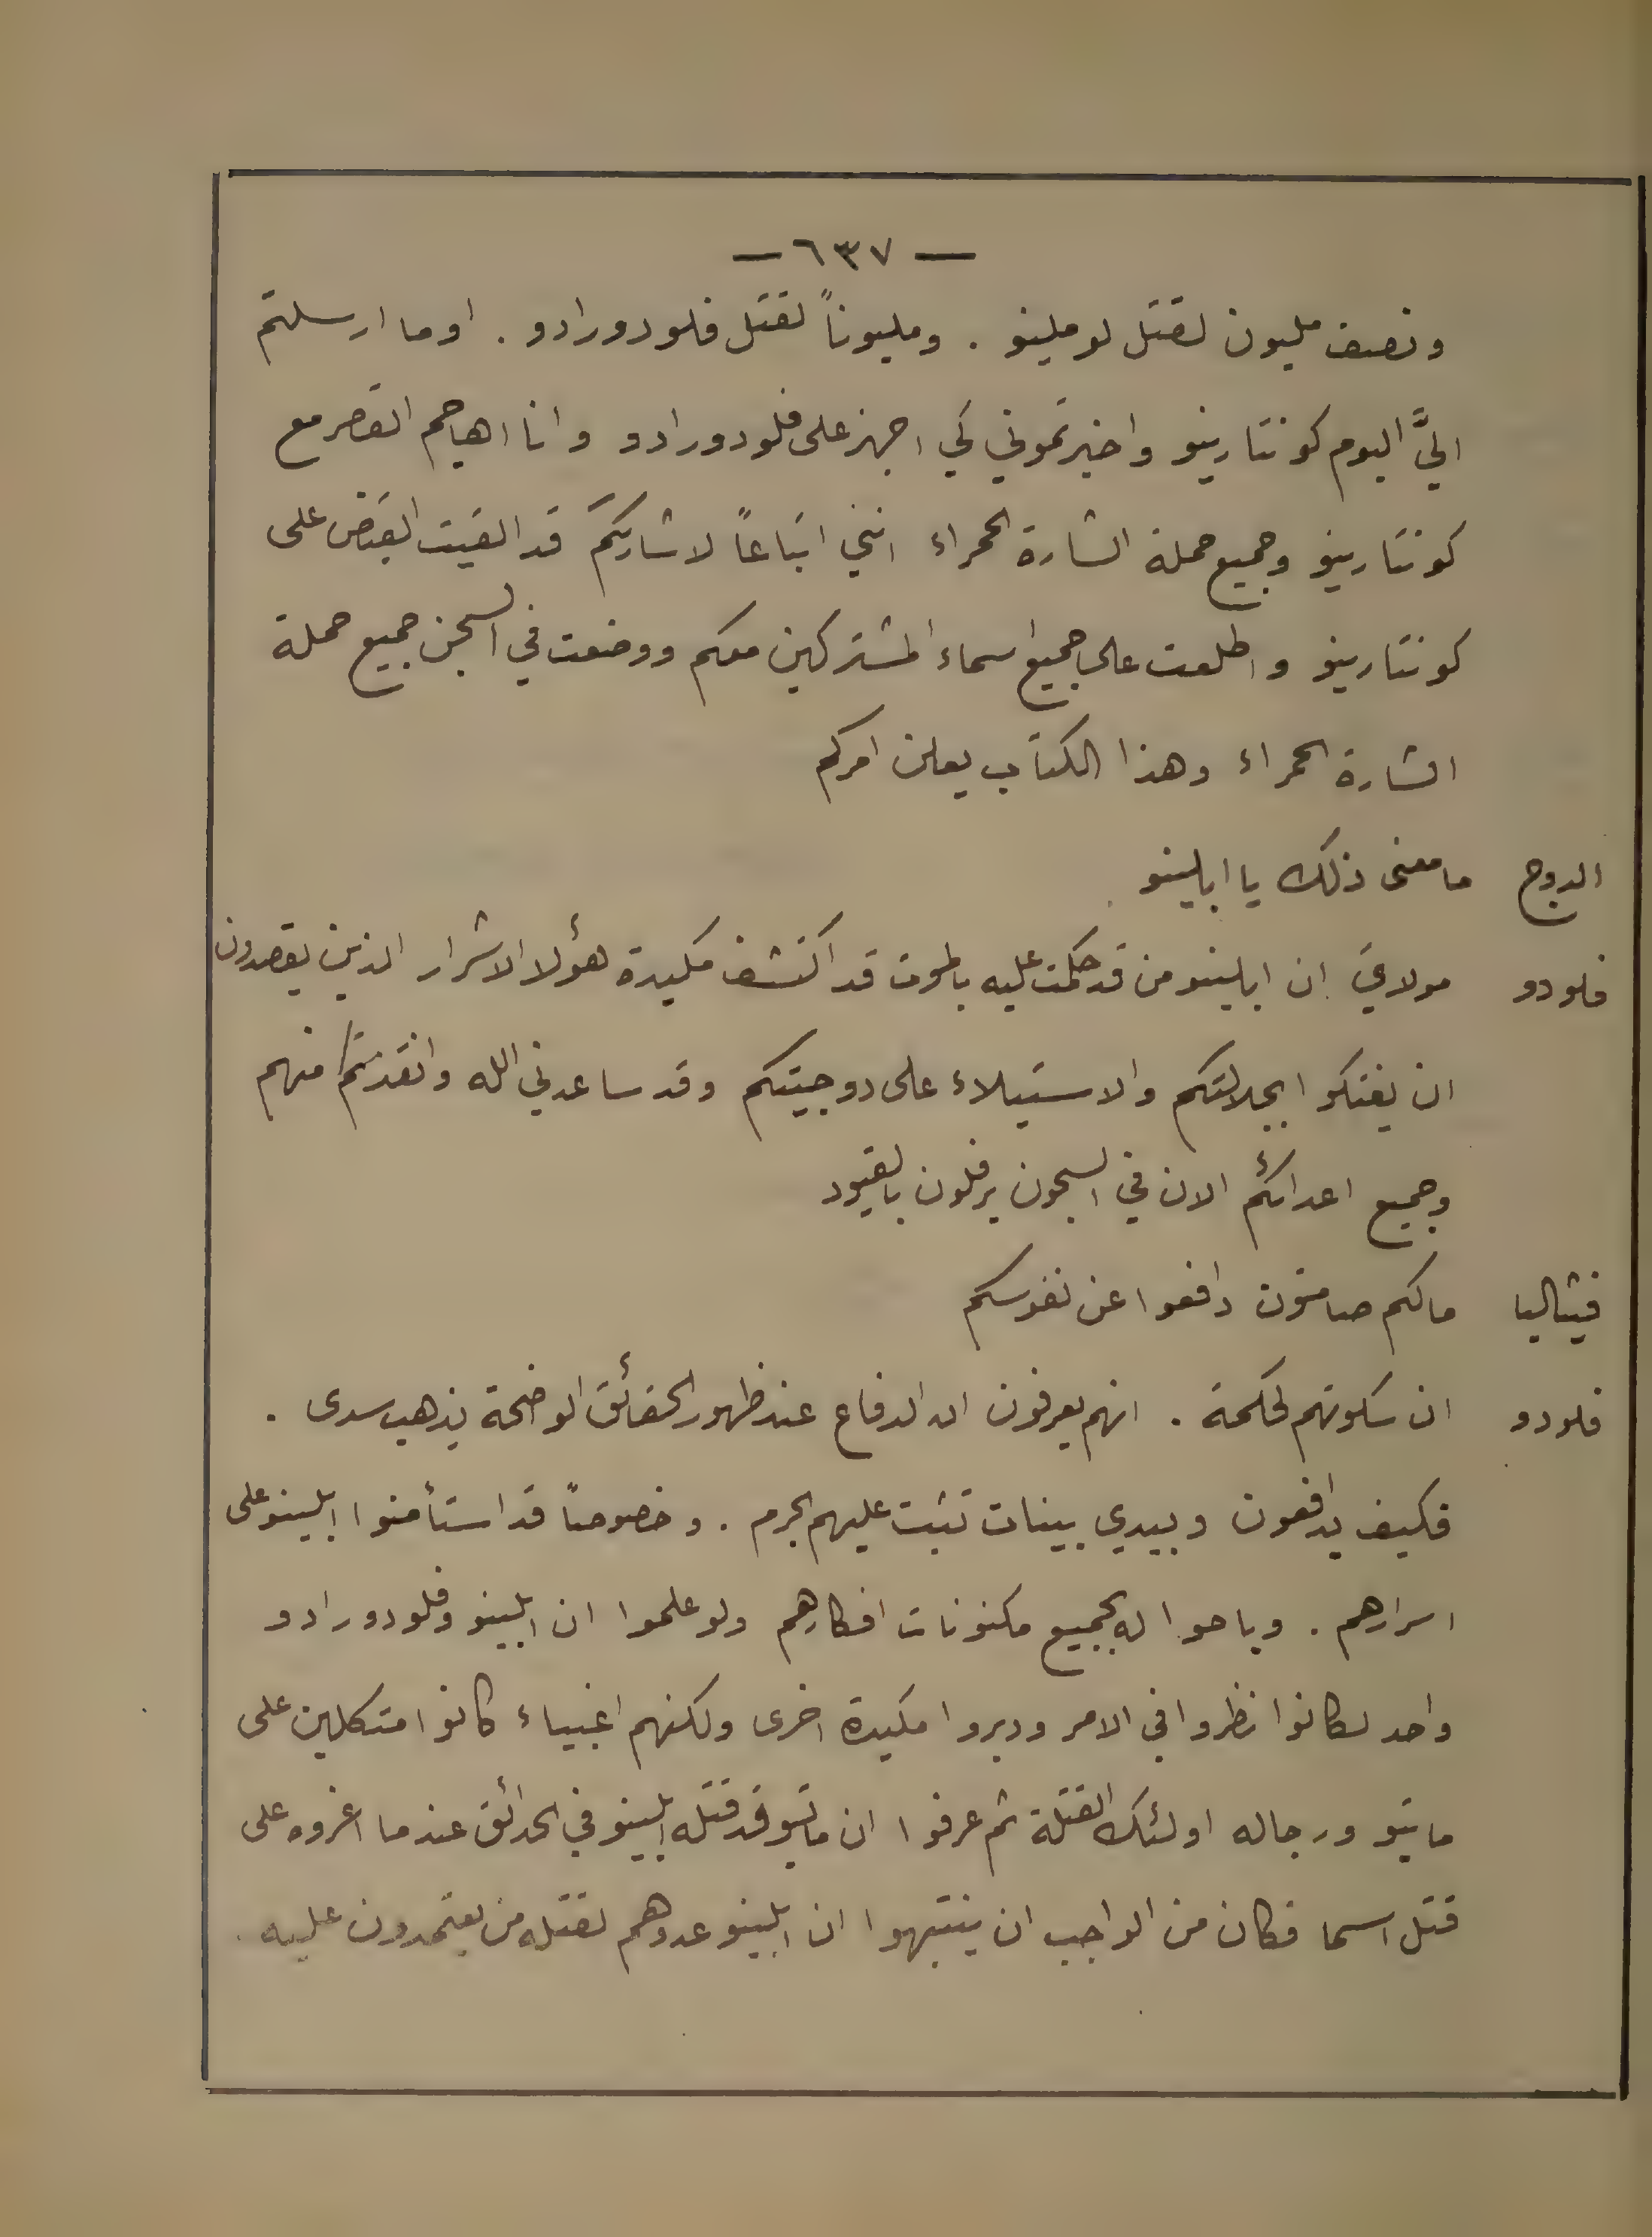 — ٦٣٧ —
ونصف مليون لقتل لوملينو . ومليوناً لقتل فلودورادو . اوما ارسلتم
اليَّ اليوم كونتارينو واخبرتموني كي اجهز على فلودورادو وانا اهاجم القصر مع
كونتارينو وجميع حملة الشارة الحمراء انني اتباعاً لاشارتكم قد القيت القبض على
كونتارينو واطلعت على جميع اسماء المشتركين معكم ووضعت في السجن جميع حملة
الشارة الحمراء وهذا الكتاب يعلن امركم
الدوج ما معنى ذلك يا ابلينو
فلودو مولاي ان ابلينو من قد حكمت عليه بالموت قد اكتشف مكيدة هؤلا الاشرار الذين يقصدون
ان يفتكوا بجلالتكم والاستيلاء على دوجيتكم وقد ساعدني الله وانقذتكم منهم
وجميع اعدائكم الان في السجون يرفلون بالقيود
فيتاليا مالكم صامتون دافعوا عن نفوسكم
فلودو ان سكوتهم لحكمة . انهم يعرفون ان الدفاع عند ظهور الحقائق الواضحة يذهب سدى .
فكيف يدافعون وبيدي بينات تثبت عليهم الجرم . وخصوصاً قد استأمنوا ابلينو على
اسرارهم . وباحوا له بجميع مكنونات افكارهم ولو علموا ان ابلينو وفلودورادو
واحد لكانوا نظروا في الامر ودبروا مكيدة اخرى ولكنهم اغبياء كانوا متكلين على
ماتيو ورجاله اولئك القتلة ثم عرفوا ان ماتيو قد قتله ابلينو في الحدائق عندما اغروه على
قتل اسما فكان من الواجب ان ينتبهوا ان ابلينو عدوهم لقتله من يعتمدون عليه .